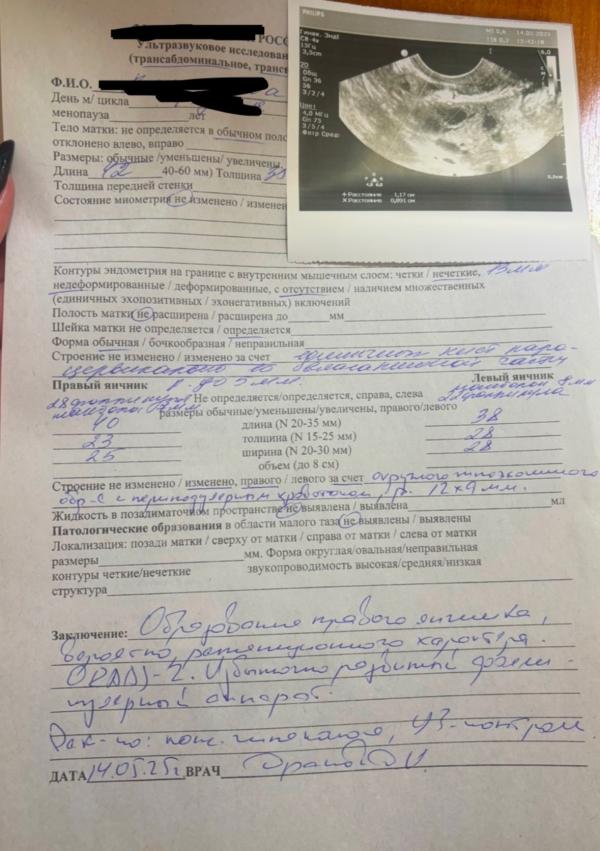 РОСС
Ультразвуковое исследован
(трансабдоминальное, транс
Ф.И.О.
День м/ цикла
менопауза лет
Тело матки: не определяется в обычном поло
отклонено влево, вправо
Размеры: обычные /уменьшены/ увеличены,
Длина 42 40-60 мм) Толщина 38
Толщина передней стенки
Состояние миометрия не изменено / изменен
PHILIPS
MI 0,6 14.05.2025
Гинек. Энд
C8-4v
15Гц
3,5cm
2D
Общ
Gn 36
56
3/2/4
Цвет
4,0 МГц
Gn 75
3/5/4
Фитр Сред
+ Расстояние 1,17 см
× Расстояние 0,891 см
Контуры эндометрия на границе с внутренним мышечным слоем: четки / нечеткие,
недеформированные / деформированные, с отсутствием / наличием множественных
(единичных эхопозитивных / эхонегативных) включений
Полость матки не расширена / расширена до мм
Шейка матки не определяется / определяется
Форма обычная / бочкообразная / неправильная
Строение не изменено / изменено за счет единичных кист пара-
цервикально
d до 5 мм.
Правый яичник Левый яичник
Не определяется/определяется, справа, слева
размеры обычные/уменьшены/увеличены, правого/левого
40 длина (N 20-35 мм) 38
23 толщина (N 15-25 мм) 28
25 ширина (N 20-30 мм) 28
объем (до 8 см)
Строение не изменено / изменено, правого / левого за счет округлого
обр-е с перинодулярным кровотоком, р. 12х9 мм.
Жидкость в позадиматочном пространстве не выявлена / выявлена мл
Патологические образования в области малого таза не выявлены / выявлены
Локализация: позади матки / сверху от матки / справа от матки / слева от матки
размеры мм. Форма округлая/овальная/неправильная
контуры четкие/нечеткие звукопроводимость высокая/средняя/низкая
структура
Заключение: Образование правого яичника,
вероятно, ретенционного характера.
ORADS-2. Избыточно развитый фолли-
кулярный аппарат.
Рек-но: конс. гинеколога, УЗ-контроль
ДАТА 14.05.25г ВРАЧ